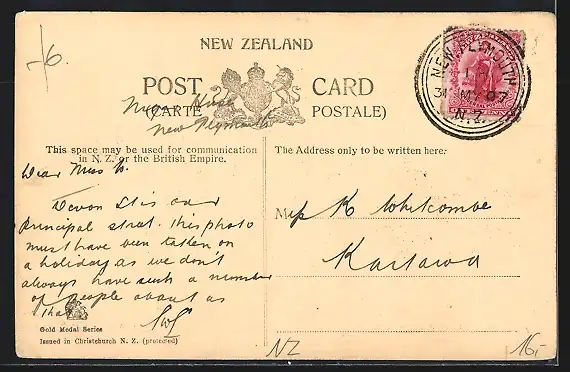 +6.
NEW ZEALAND
POST CARD
(CARTE POSTALE)
New Plymouth
NEW PLYMOUTH
31 MY 07
N.Z.
This space may be used for communication
in N. Z. or the British Empire.
The Address only to be written here.
Dear Miss W.
Devon St is our
Principal street. This photo
must have been taken on
a holiday as we don't
always have such a number
of people about as
that
Miss K Whitcombe
Kaitawa
Gold Medal Series
Issued in Christchurch N. Z. (protected)
NZ
16,-